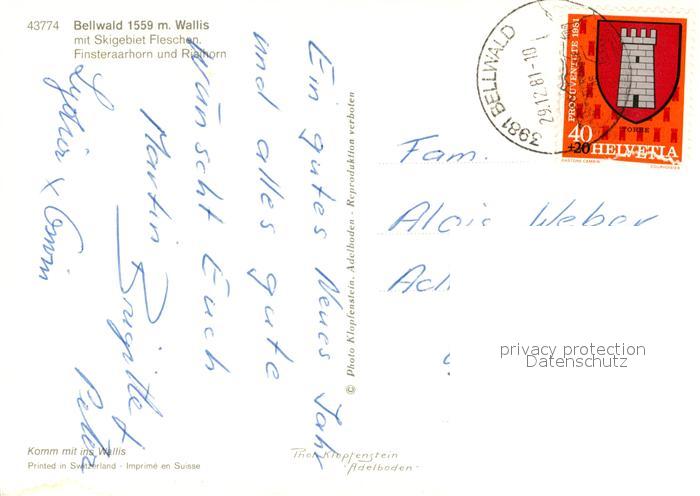 43774 Bellwald 1559 m. Wallis
mit Skigebiet Fleschen.
Finsteraarhorn und Rielhorn
Ein gutes Neues Jahr
und alles gute
wünscht Euch
Martin Brigitte &
Peter
3981 BELLWALD
29.12.81-10
PRO JUVENTUTE 1981
TORRE
40
+20 HELVETIA
COURVOISIER
Fam.
Alois Weber
© Photo Klopfenstein, Adelboden - Reproduktion verboten
privacy protection
Datenschutz
Komm mit ins Wallis
Printed in Switzerland - Imprimé en Suisse
Phot. Klopfenstein
Adelboden